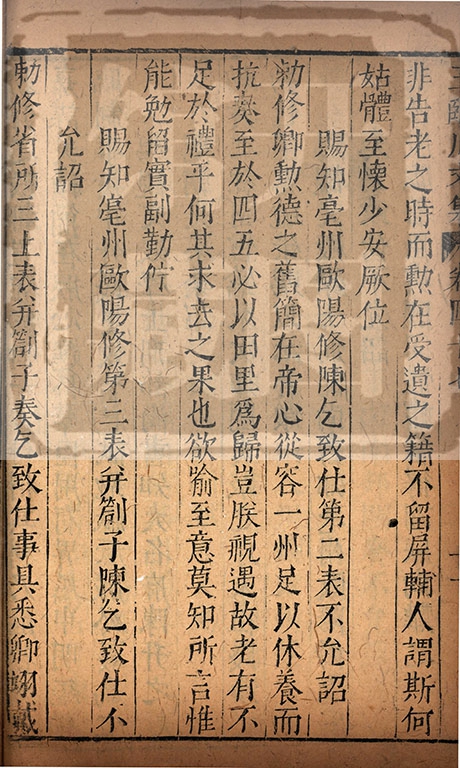 非告老之時而勲在受遺之籍不留屏輔人謂斯何
姑體至懷少安厥位
賜知亳州歐陽修陳乞致仕第二表不允詔
勑修卿勲德之舊簡在帝心從容一州足以休養而
抗奏至於四五必以田里爲歸豈朕視遇故老有不
足於禮乎何其求去之果也欲喻至意莫知所言惟
能勉留實副勤佇
賜知亳州歐陽修第三表并劄子陳乞致仕不
允詔
勑修省所三上表并劄子奏乞致仕事具悉卿翊戴